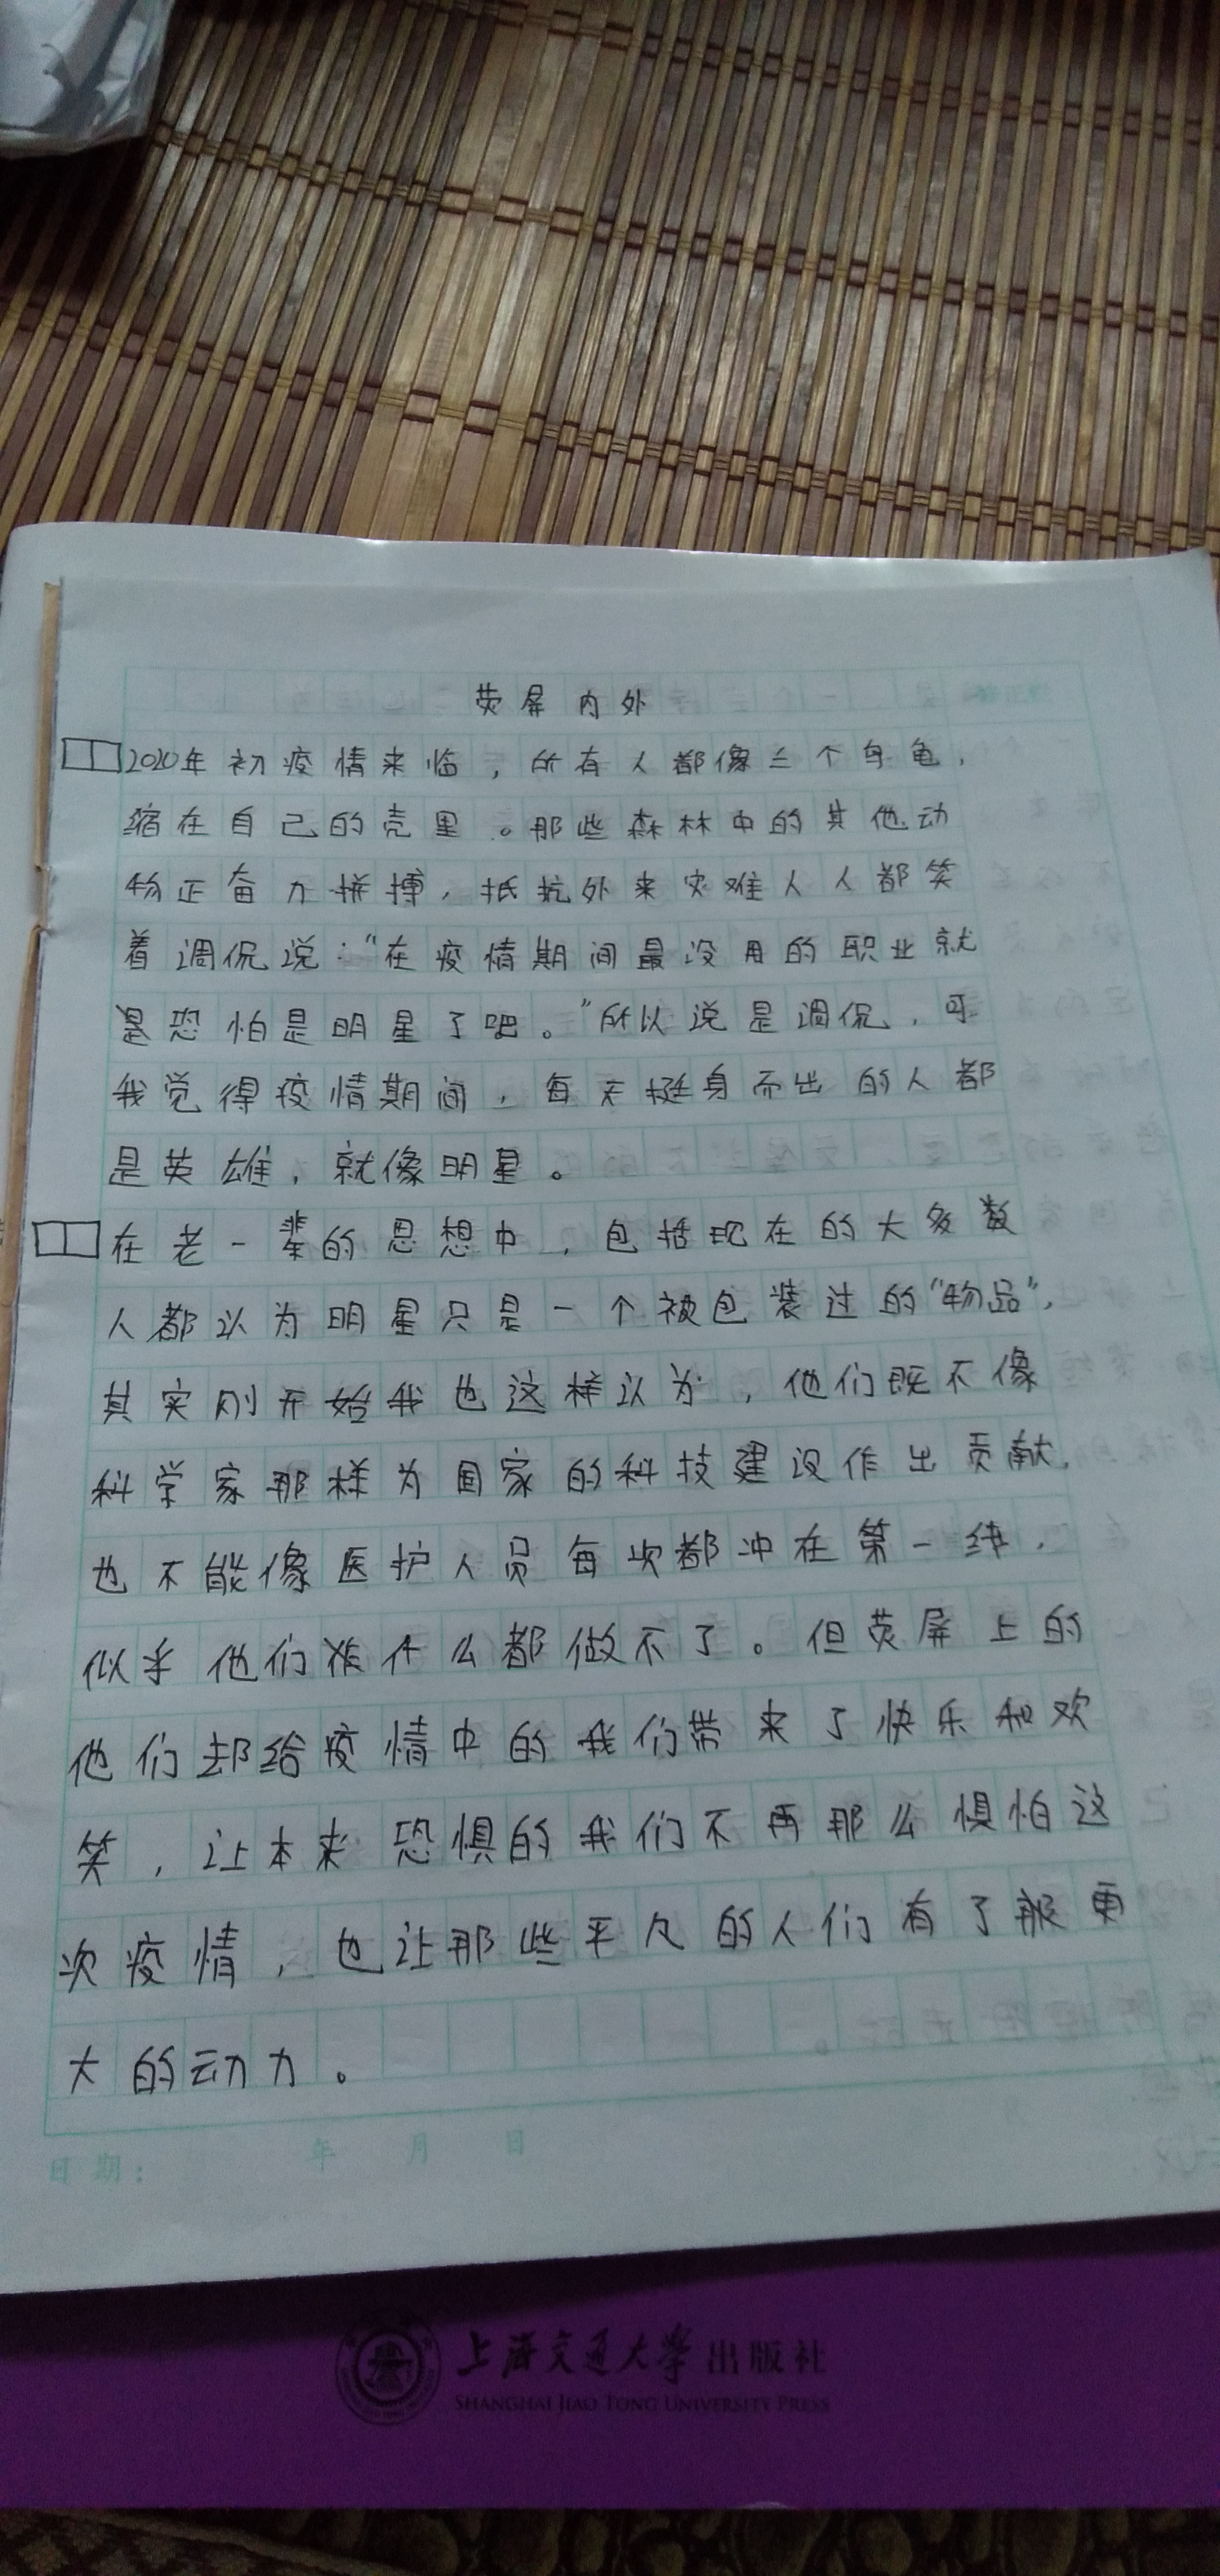 荧屏内外
2020年初疫情来临，所有人都像三个乌龟，
缩在自己的壳里。那些森林中的其他动
物正奋力拼搏，抵抗外来灾难人人都笑
着调侃说："在疫情期间最没用的职业就
是恐怕是明星了吧。"所以说是调侃，可
我觉得疫情期间，每天挺身而出的人都
是英雄，就像明星。
在老一辈的思想中，包括现在的大多数
人都以为明星只是一个被包装过的"物品"，
其实刚开始我也这样以为，他们既不像
科学家那样为国家的科技建设作出贡献，
也不能像医护人员每次都冲在第一线，
似乎他们什么都做不了。但荧屏上的
他们却给疫情中的我们带来了快乐和欢
笑，让本来恐惧的我们不再那么惧怕这
次疫情，也让那些平凡的人们有了更
大的动力。
日期： 年 月 日
上海交通大学出版社
SHANGHAI JIAO TONG UNIVERSITY PRESS